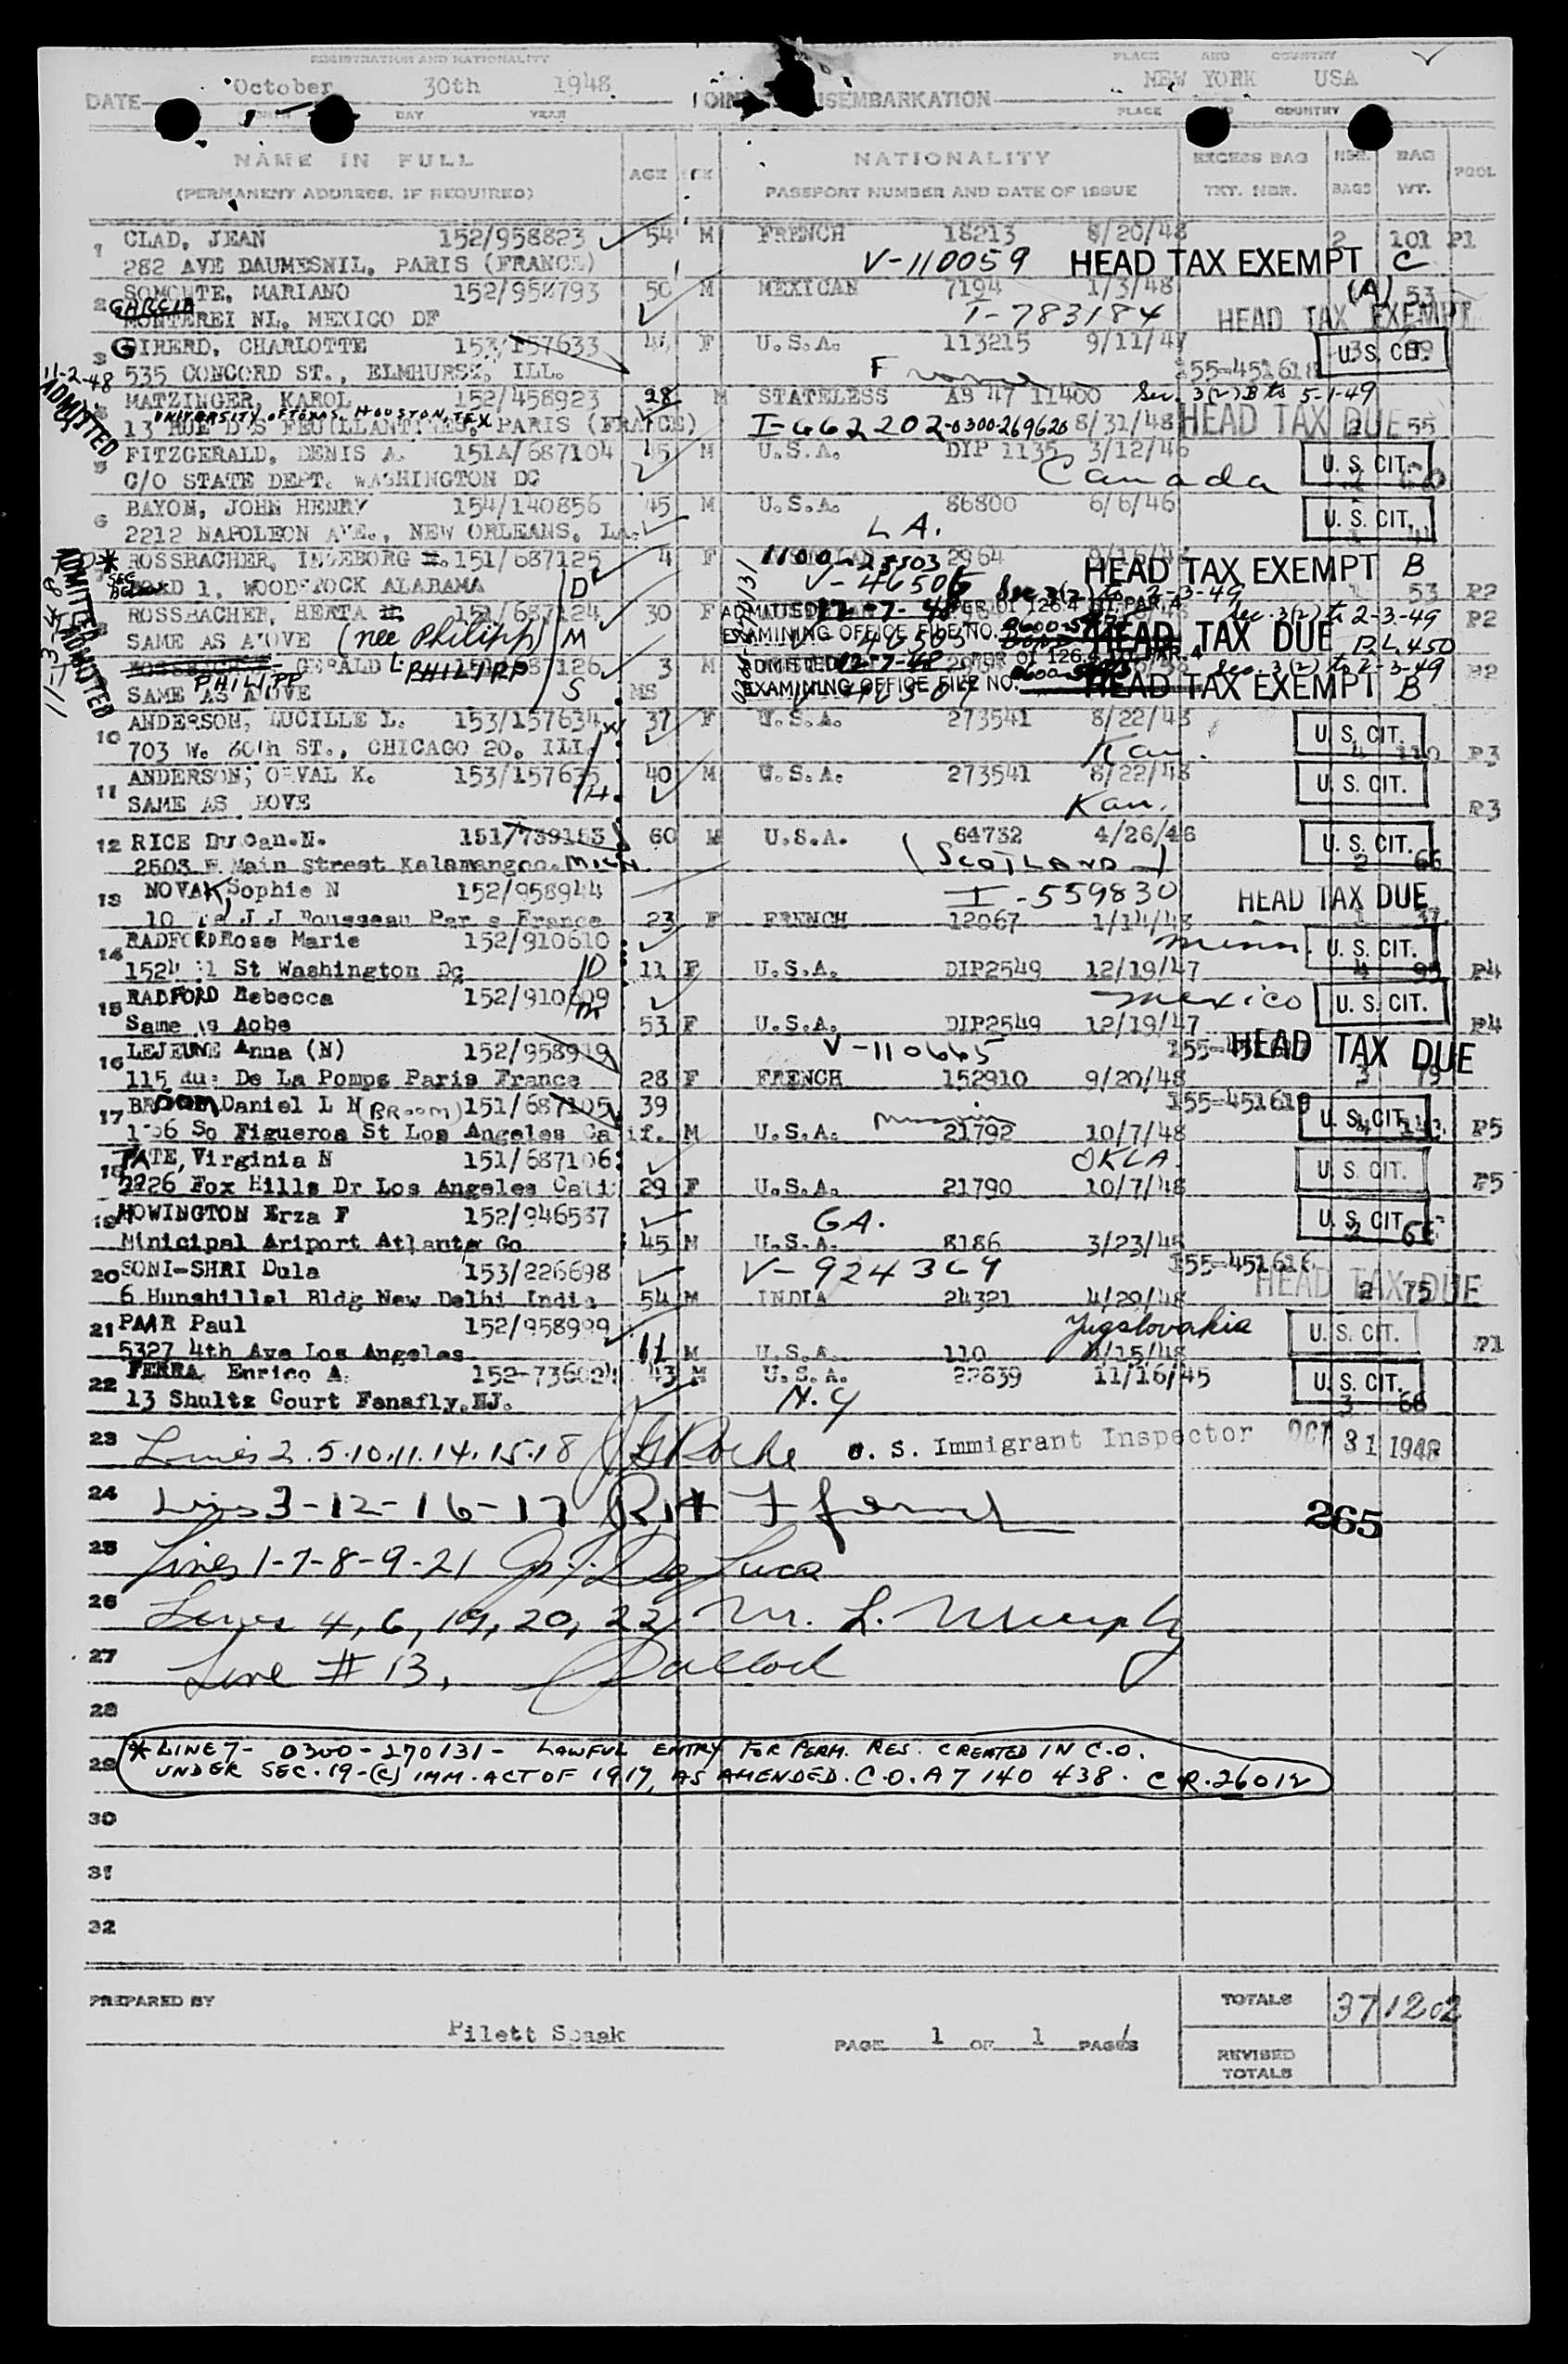 REGISTRATION AND NATIONALITY PLACE AND COUNTRY
DATE October 30th 1948 DISEMBARKATION NEW YORK USA
DAY YEAR PLACE COUNTRY
NAME IN FULL AGE NATIONALITY EXCESS BAG NBR. BAG POOL
(PERMANENT ADDRESS, IF REQUIRED) PASSPORT NUMBER AND DATE OF ISSUE TKT. NBR. BAGS WT.
1 CLAD, JEAN 152/958823 54 M FRENCH 18213 8/20/48 2 101 P1
282 AVE DAUMESNIL, PARIS (FRANCE) V-110059 HEAD TAX EXEMPT C
2 SOMONTE, MARIANO 152/958793 50 M MEXICAN 7194 1/3/48 (A) 53
GARCIA MONTEREI NL, MEXICO DF I-783184 HEAD TAX EXEMPT
3 GIRERD, CHARLOTTE 153/157633 F U.S.A. 113215 9/11/47 U.S. CIT.
535 CONCORD ST., ELMHURST, ILL. 155-451618
11-2-48 ADMITTED
MATZINGER, KAROL 152/458923 28 M STATELESS AS 47 11400 Sec. 3(2) B to 5-1-49
UNIVERSITY OF TEXAS, HOUSTON, TEX
13 RUE DES FEUILLANTINES, PARIS (FRANCE) I-662202-0300-269620 8/31/48 HEAD TAX DUE 55
5 FITZGERALD, DENIS A. 151A/687104 45 M U.S.A. DIP 1135 3/12/46 U.S. CIT.
C/O STATE DEPT. WASHINGTON DC Canada
6 BAYON, JOHN HENRY 154/140856 45 M U.S.A. 86800 6/6/46 U.S. CIT.
2212 NAPOLEON AVE., NEW ORLEANS, LA. LA.
* ROSSBACHER, INGEBORG 151/687125 4 F 2964 HEAD TAX EXEMPT B
SEE BELOW ROAD 1, WOODSTOCK ALABAMA D V-46505 Sec. 3(2) to 2-3-49 1 53 P2
ROSSBACHER, HERTA 151/687124 30 F ADMITTED 12-7-48 PER OI 126.4 PAR.4 Sec. 3(2) to 2-3-49 P2
SAME AS ABOVE (nee Philipp) M EXAMINING OFFICE FILE NO. HEAD TAX DUE
ROSSBACHER, GERALD PHILIPP 151/687126 3 M ADMITTED 12-7-48 PER OI 126.4 PAR.4 Sec. 3(2) to 2-3-49 P2
SAME AS ABOVE PHILIPP S MS EXAMINING OFFICE FILE NO. HEAD TAX EXEMPT B
ADMITTED
10 ANDERSON, LUCILLE L. 153/157634 W 37 F U.S.A. 273541 8/22/48 U.S. CIT.
703 W. 60th ST., CHICAGO 20, ILL. Kan. 4 110 P3
11 ANDERSON, ORVAL K. 153/157635 40 M U.S.A. 273541 8/22/48 U.S. CIT.
SAME AS ABOVE H Kan. P3
12 RICE Duncan.N. 151/739153 60 M U.S.A. 64732 4/26/46 U.S. CIT.
2503 E Main Street Kalamangoo. MICH (SCOTLAND) 2 66
13 NOVAK, Sophie N 152/958944 I-559830 HEAD TAX DUE
10 J J Rousseau France 23 F FRENCH 12067 1/14/48 1 37
14 RADFORD Rose Marie 152/910610 Minn. U.S. CIT.
St Washington Dc D 11 F U.S.A. DIP2549 12/19/47 4 95 P4
15 RADFORD Rebecca 152/910609 Mexico U.S. CIT.
Same as Aobe M 53 F U.S.A. DIP2549 12/19/47 P4
16 LEJEUNE Anna (N) 152/958919 V-110665 HEAD TAX DUE
115 Rue De La Pompe Paris France 28 F FRENCH 152910 9/20/48 3 79
17 BROOM, Daniel L N (BROOM) 151/687105 39 155-451619 U.S. CIT.
So Figueroa St Los Angeles Calif. M U.S.A. 21792 10/7/48 P5
18 TATE, Virginia N 151/687106 OKLA. U.S. CIT.
2226 Fox Hills Dr Los Angeles Cali 29 F U.S.A. 21790 10/7/48 P5
19 HOWINGTON Erza F 152/946587 GA. U.S. CIT.
Minicipal Ariport Atlanta Go 45 M U.S.A. 8186 3/23/45
20 SONI-SHRI Dula 153/226698 V-924369 155-451616 HEAD TAX DUE
6 Hunshillel Bldg New Delhi India 54 M INDIA 24321 4/29/48 2 75
21 PAAR Paul 152/958999 Yugslovakia U.S. CIT.
5327 4th Ave Los Angeles 61 M U.S.A. 110 P1
22 FERRA, Enrico A. 152-736024 43 M U.S.A. 22839 11/16/45 U.S. CIT.
13 Shultz Court Fenafly.NJ. N.Y 3 66
23 Lines 2.5.10.11.14.15.18 J G Roche U. S. Immigrant Inspector OCT 31 1948
24 Lines 3-12-16-17 265
25 Lines 1-7-8-9-21 De Luca
26 Lines 4, 6, 19, 20, 22 M. L. Murphy
27 Line # 13,
28
29 * LINE 7- 0300-270131- LAWFUL ENTRY FOR PERM. RES. CREATED IN C.O.
UNDER SEC. 19-(C) IMM. ACT OF 1917, AS AMENDED. C.O. A7 140 438. CR. 26012
30
31
32
PREPARED BY TOTALS 37 1202
Pilett Spaak PAGE 1 OF 1 PAGES
REVISED TOTALS